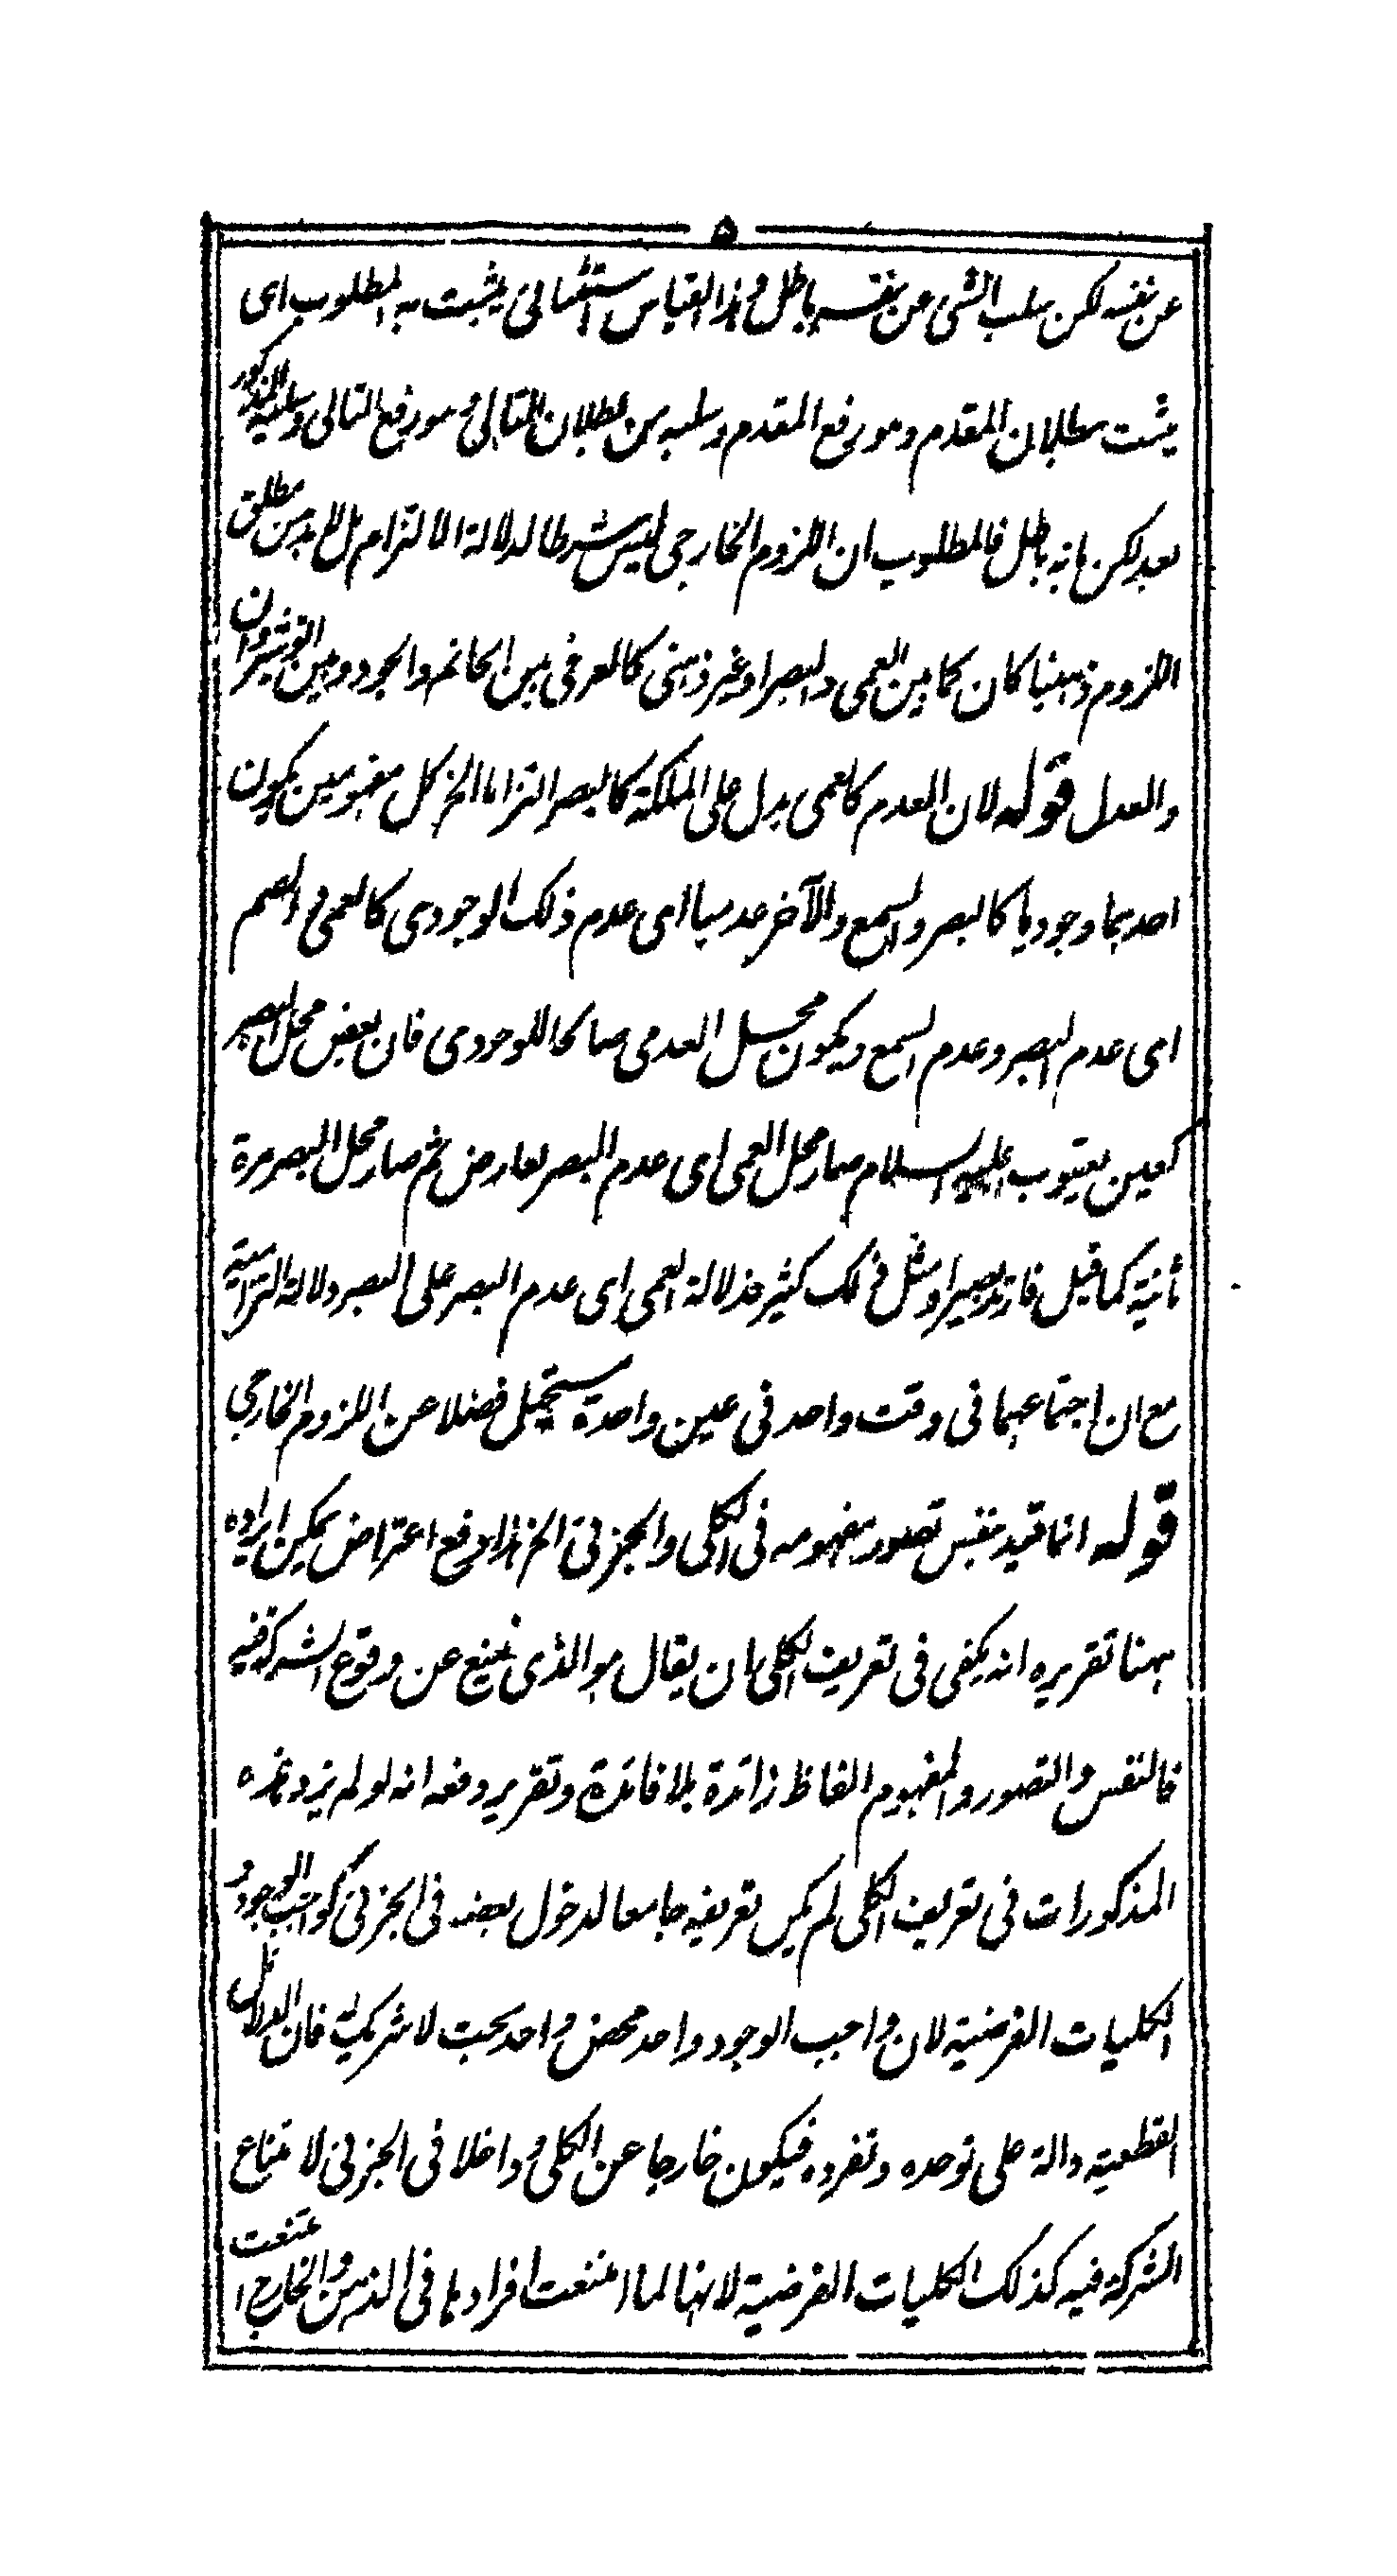 ٥
عن نفسه لكن سلب الشئ عن نفسه باطل وهذا القياس استثنائى يثبت به المطلوب اى
يثبت بطلان المقدم وهو رفع المقدم وسلبه من بطلان التالى وهو رفع التالى وسلبه المذكور
بعد لكن بانه باطل فالمطلوب ان اللزوم الخارجى ليس شرطا لدلالة الالتزام بل لا بد من مطلق
اللزوم ذهنيا كان كما بين العمى والبصر او غير ذهنى كالعرفى بين الحاتم والجود وبين انوشيروان
والعدل قوله لان العدم كالعمى يدل على الملكة كالبصر التزاما الخ كل مفهومين يكون
احدهما وجوديا كالبصر والسمع والآخر عدميا اى عدم ذلك الوجودى كالعمى والصم
اى عدم البصر وعدم السمع ويكون محل العدمى صالحا للوجودى فان بعض محل البصر
كعين يعقوب عليه السلام صار محل العمى اى عدم البصر لعارض ثم صار محل البصر مرة
ثانية كما قيل فارتد بصيرا ومثل ذلك كثير فدلالة العمى اى عدم البصر على البصر دلالة التزامية
مع ان اجتماعهما فى وقت واحد فى عين واحدة مستحيل فضلا عن اللزوم الخارجى
قوله انما قيد بنفس تصور مفهومه فى الكلى والجزئى الخ هذا دفع اعتراض يمكن ايراده
ههنا تقريره انه يكفى فى تعريف الكلى بان يقال هو الذى يمنع عن وقوع الشركة فيه
فالنفس والتصور والمفهوم الفاظ زائدة بلا فائدة وتقرير دفعه انه لو لم يزد هذه
المذكورات فى تعريف الكلى لم يكن تعريفه جامعا لدخول بعضه فى الجزئى كواجب الوجود و
الكليات الفرضية لان واجب الوجود واحد محض واحد بحت لا شريك له فان الدلائل
القطعية دالة على توحده وتفرده فيكون خارجا عن الكلى وداخلا فى الجزئى لامتناع
الشركة فيه كذلك الكليات الفرضية لانها لما امتنعت افرادها فى الذهن والخارج امتنعت